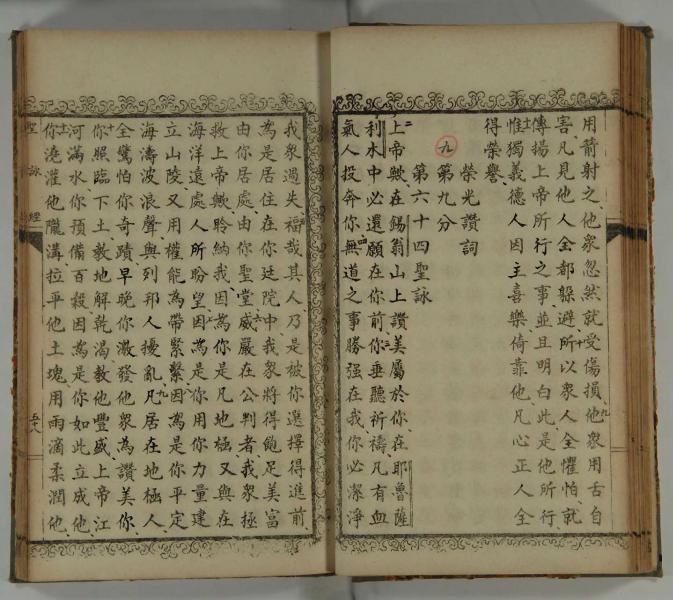 用箭射之他衆忽然就受傷損九他衆用舌自
害凡見他人全都躲避十所以衆人全懼怕就
傳揚上帝所行之事並且明白此是他所行
十一惟獨義德人因主喜樂倚靠他凡心正人全
得榮譽
榮光讚詞
九 第九分
第六十四聖詠
二上帝歟在錫翁山上讚美屬於你在耶魯薩
利木中必還願在你前三你垂聽祈禱凡有血
氣人投奔你四無道之事勝强在我你必潔淨
我衆過失五福哉其人乃是被你選擇得進前
為是居住在你廷院中我衆將得飽足美富
由你居處由你聖堂六威嚴在公判者我衆極
救上帝歟聆納我因為你是凡地極又與在
海洋遠處人所盼望七因為是你用你力量建
立山陵又用權能為帶緊緊八因為是你平定
海濤波浪聲與列邦人擾亂九凡居在地極人
全驚怕你奇蹟早晚你激發他衆為讚美你
十你照臨下土教地解乾渴教他豐盛上帝江
河滿水你預備百穀因為是你如此立土他
十一你澆灌他隴溝拉平他土塊用雨滴柔潤他
聖詠經
五十八